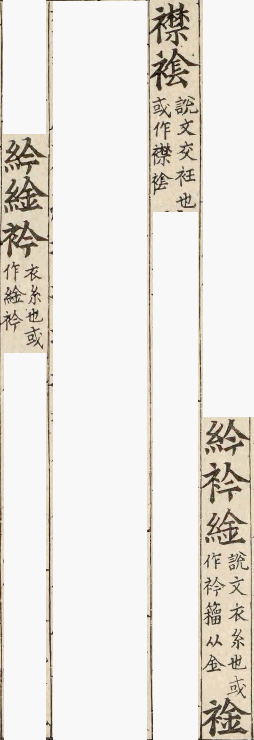 紟衿䋮說文衣系也或作衿籀从金裣
襟䘳說文交衽也或作襟䘳
紟䋮衿衣系也或作䋮衿